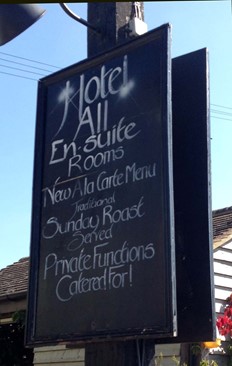 Hotel
All
En-suite
Rooms
New A la Carte Menu
Traditional
Sunday Roast
Served
Private Functions
Catered For!